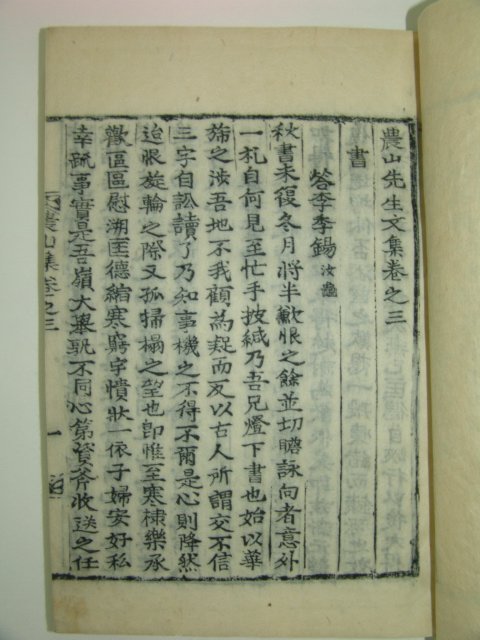 農山先生文集卷之三
書
答李季錫
秋書未復冬月將半歉恨之餘並切瞻詠向者意外
一札自何見至忙手披緘乃吾兄燈下書也始以華
旆之涉吾地不我顧為疑而反以古人所謂交不信
三字自訟讀了乃知事機之不得不爾是心則降然
追恨旋輪之際又孤掃榻之望也卽惟至寒棣樂承
歡區區慰溯匡德縮寒窮宇憤狀一依子婦安好私
幸疏事實是吾嶺大擧孰不同心第資斧收送之任
農山集卷之三
一